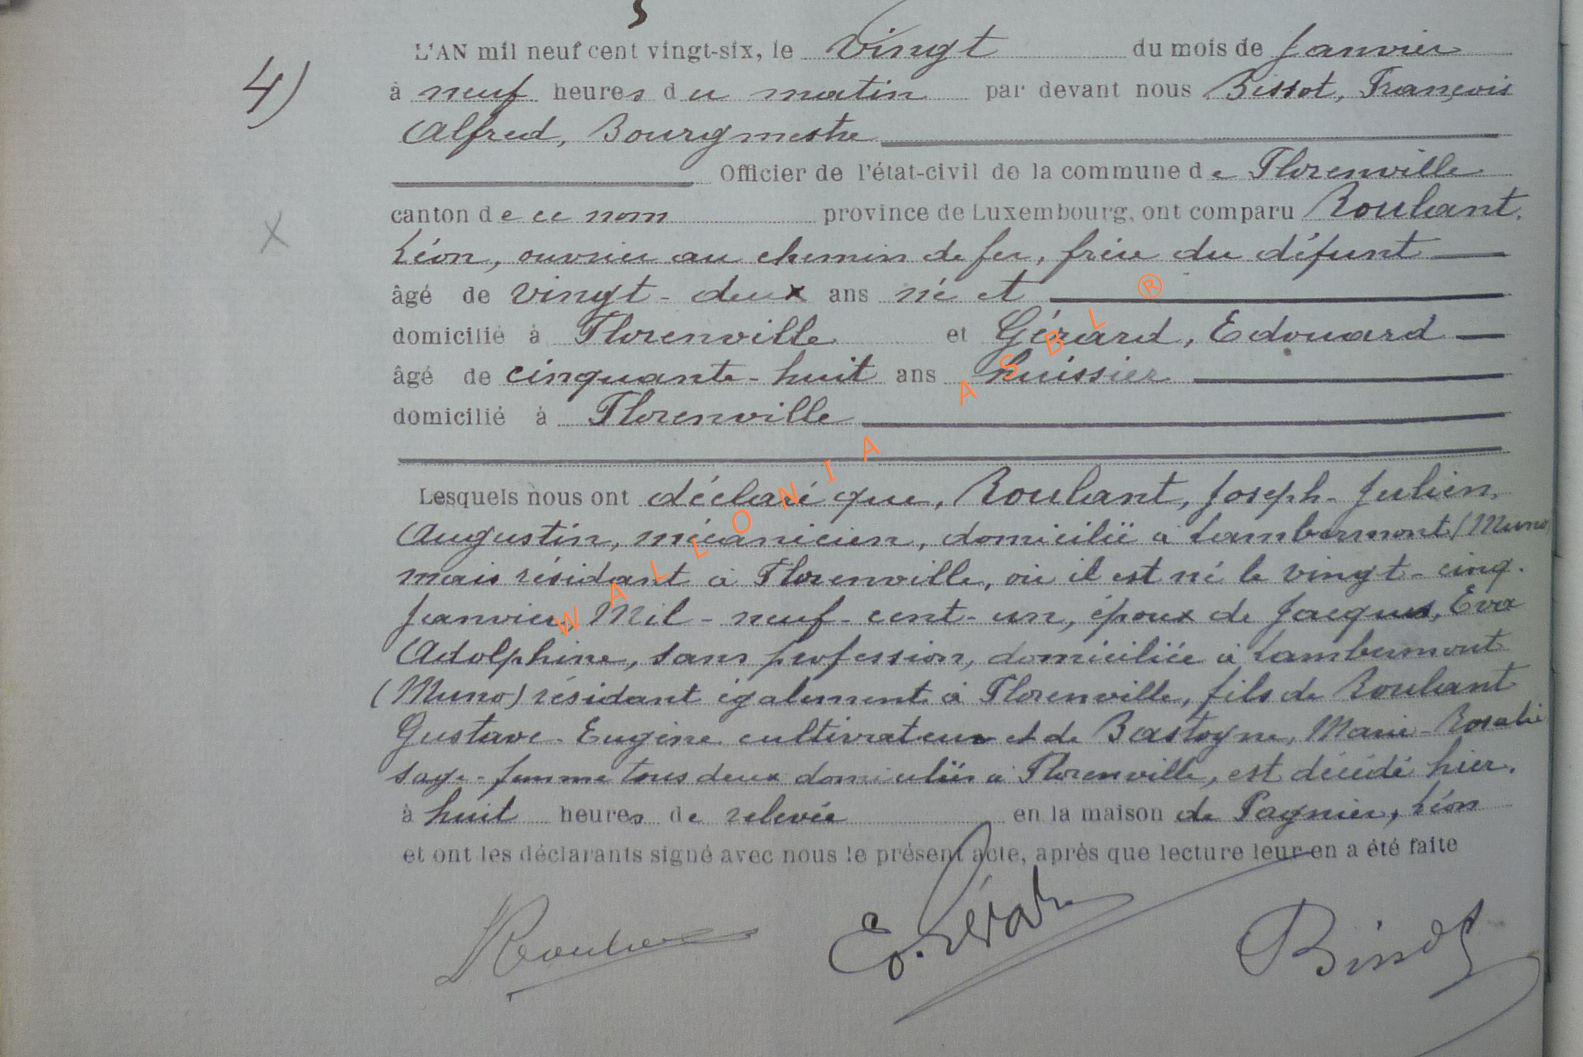 L'AN mil neuf cent vingt-six, le Vingt du mois de Janvier
4) à neuf heures du matin par devant nous Bissot, François
Alfred, Bourgmestre
Officier de l'état-civil de la commune de Florenville
canton de ce nom province de Luxembourg, ont comparu Roulant,
Léon, ouvrier au chemin de fer, frère du défunt
âgé de vingt-deux ans né et
domicilié à Florenville et Gérard, Edouard
âgé de cinquante-huit ans huissier
domicilié à Florenville
Lesquels nous ont déclaré que, Roulant, Joseph-Julien,
Augustin, mécanicien, domicilié à Lambermont (Muno
mais résidant à Florenville, où il est né le vingt-cinq
Janvier Mil-neuf-cent-un, époux de Jacques, Eva
Adolphine, sans profession, domiciliée à Lambermont
(Muno) résidant également à Florenville, fils de Roulant
Gustave-Eugène cultivateur et de Bastogne, Marie-Rosalie
sage-femme tous deux domiciliés à Florenville, est décédé hier,
à huit heures de relevée en la maison de Pagnier, Léon
et ont les déclarants signé avec nous le présent acte, après que lecture leur en a été faite
E. Gérard Bissot
WALLONIA ASBL ®